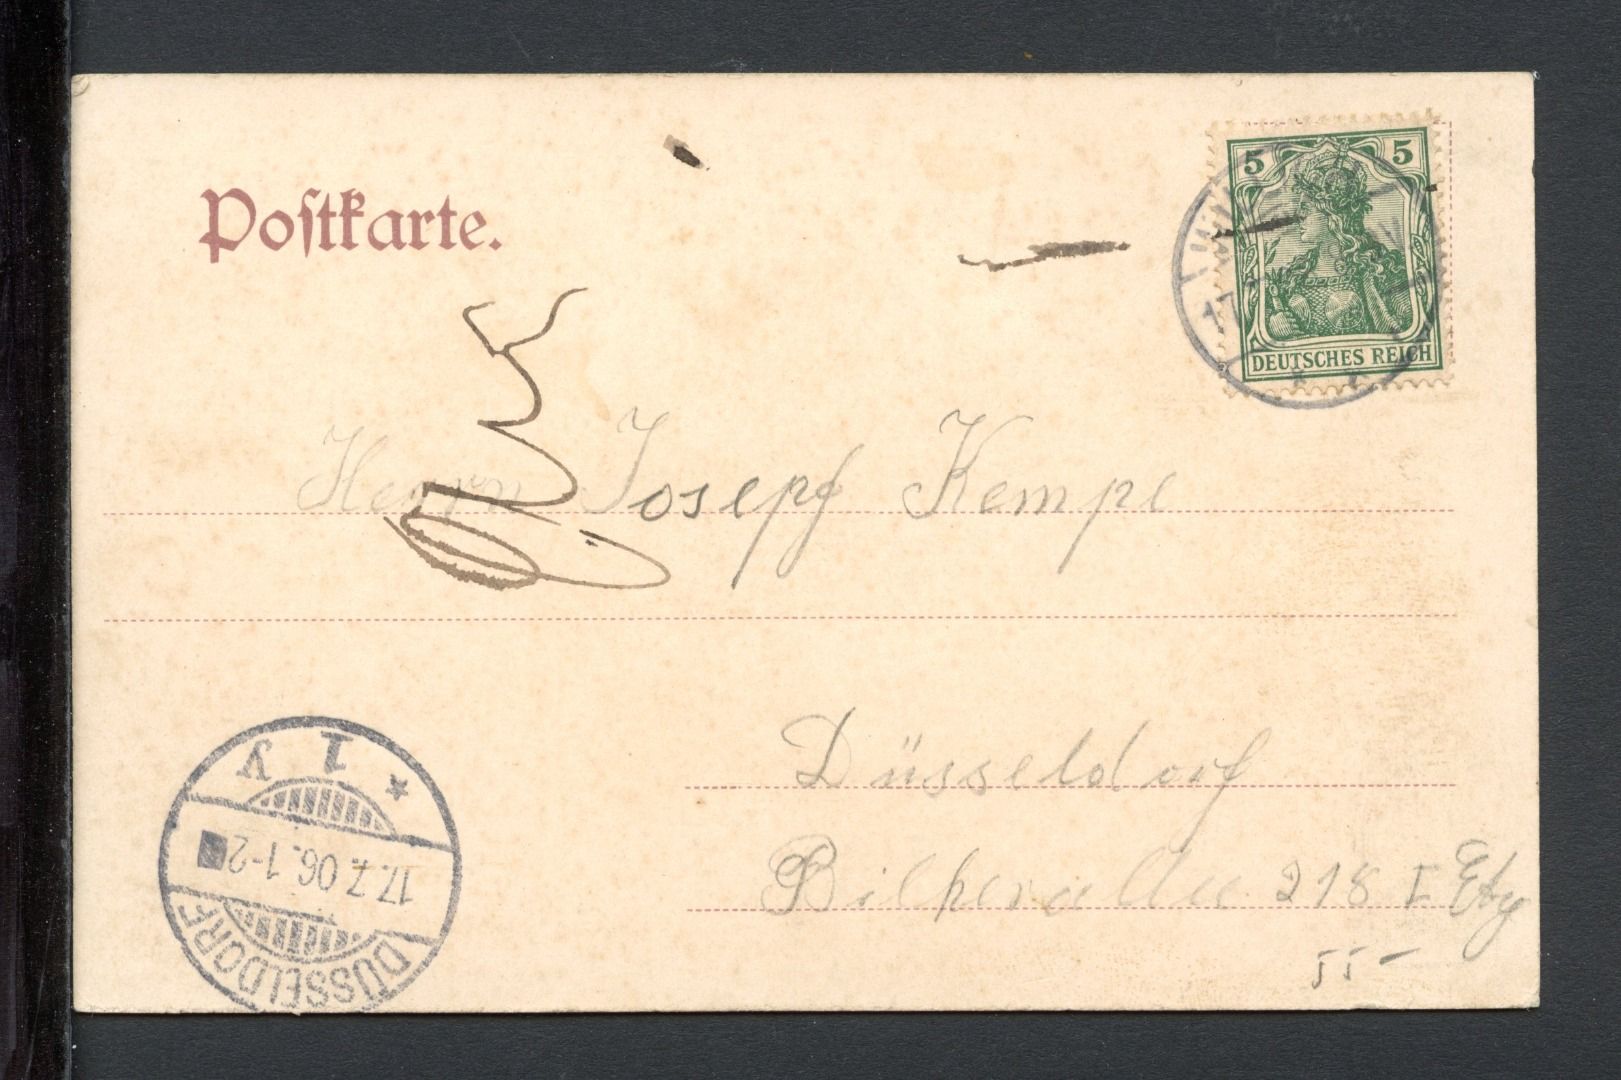 Postkarte.
5 5
DEUTSCHES REICH
Herrn Josef Kempe
Düsseldorf
Bilkerallee 218 I Etg
55-
1 y
17.7.06. 1-2
DÜSSELDORF